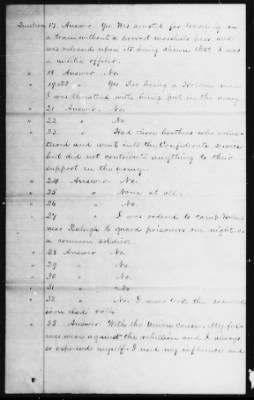 Question 17 Answer. Yes. Was arrested for traveling on
a train without a provost marshal's pass and
was released upon its being shown that I was
a militia officer.
" 18 Answer No.
" 19 " Yes I for being a Holden man
I was threatened with being put in the army.
" 21 Answer. No.
" 22 " No
" 23 " Had three brothers who were
and went into the Confederate service
but did not contribute anything to their
support in the army.
" 24 Answer. No.
" 25 " None at all.
" 26 " No
" 27 " I was ordered to camp Holmes
near Raleigh to guard prisoners one night as
a common soldier.
" 28 Answer No.
" 29 " No.
" 30 " No.
" 31 " No
" 32 " No. I never took the
iron clad oath.
" 33 Answer. With the Union cause. My feel-
ings were against the rebellion and I always
so expressed myself. I used my influence and